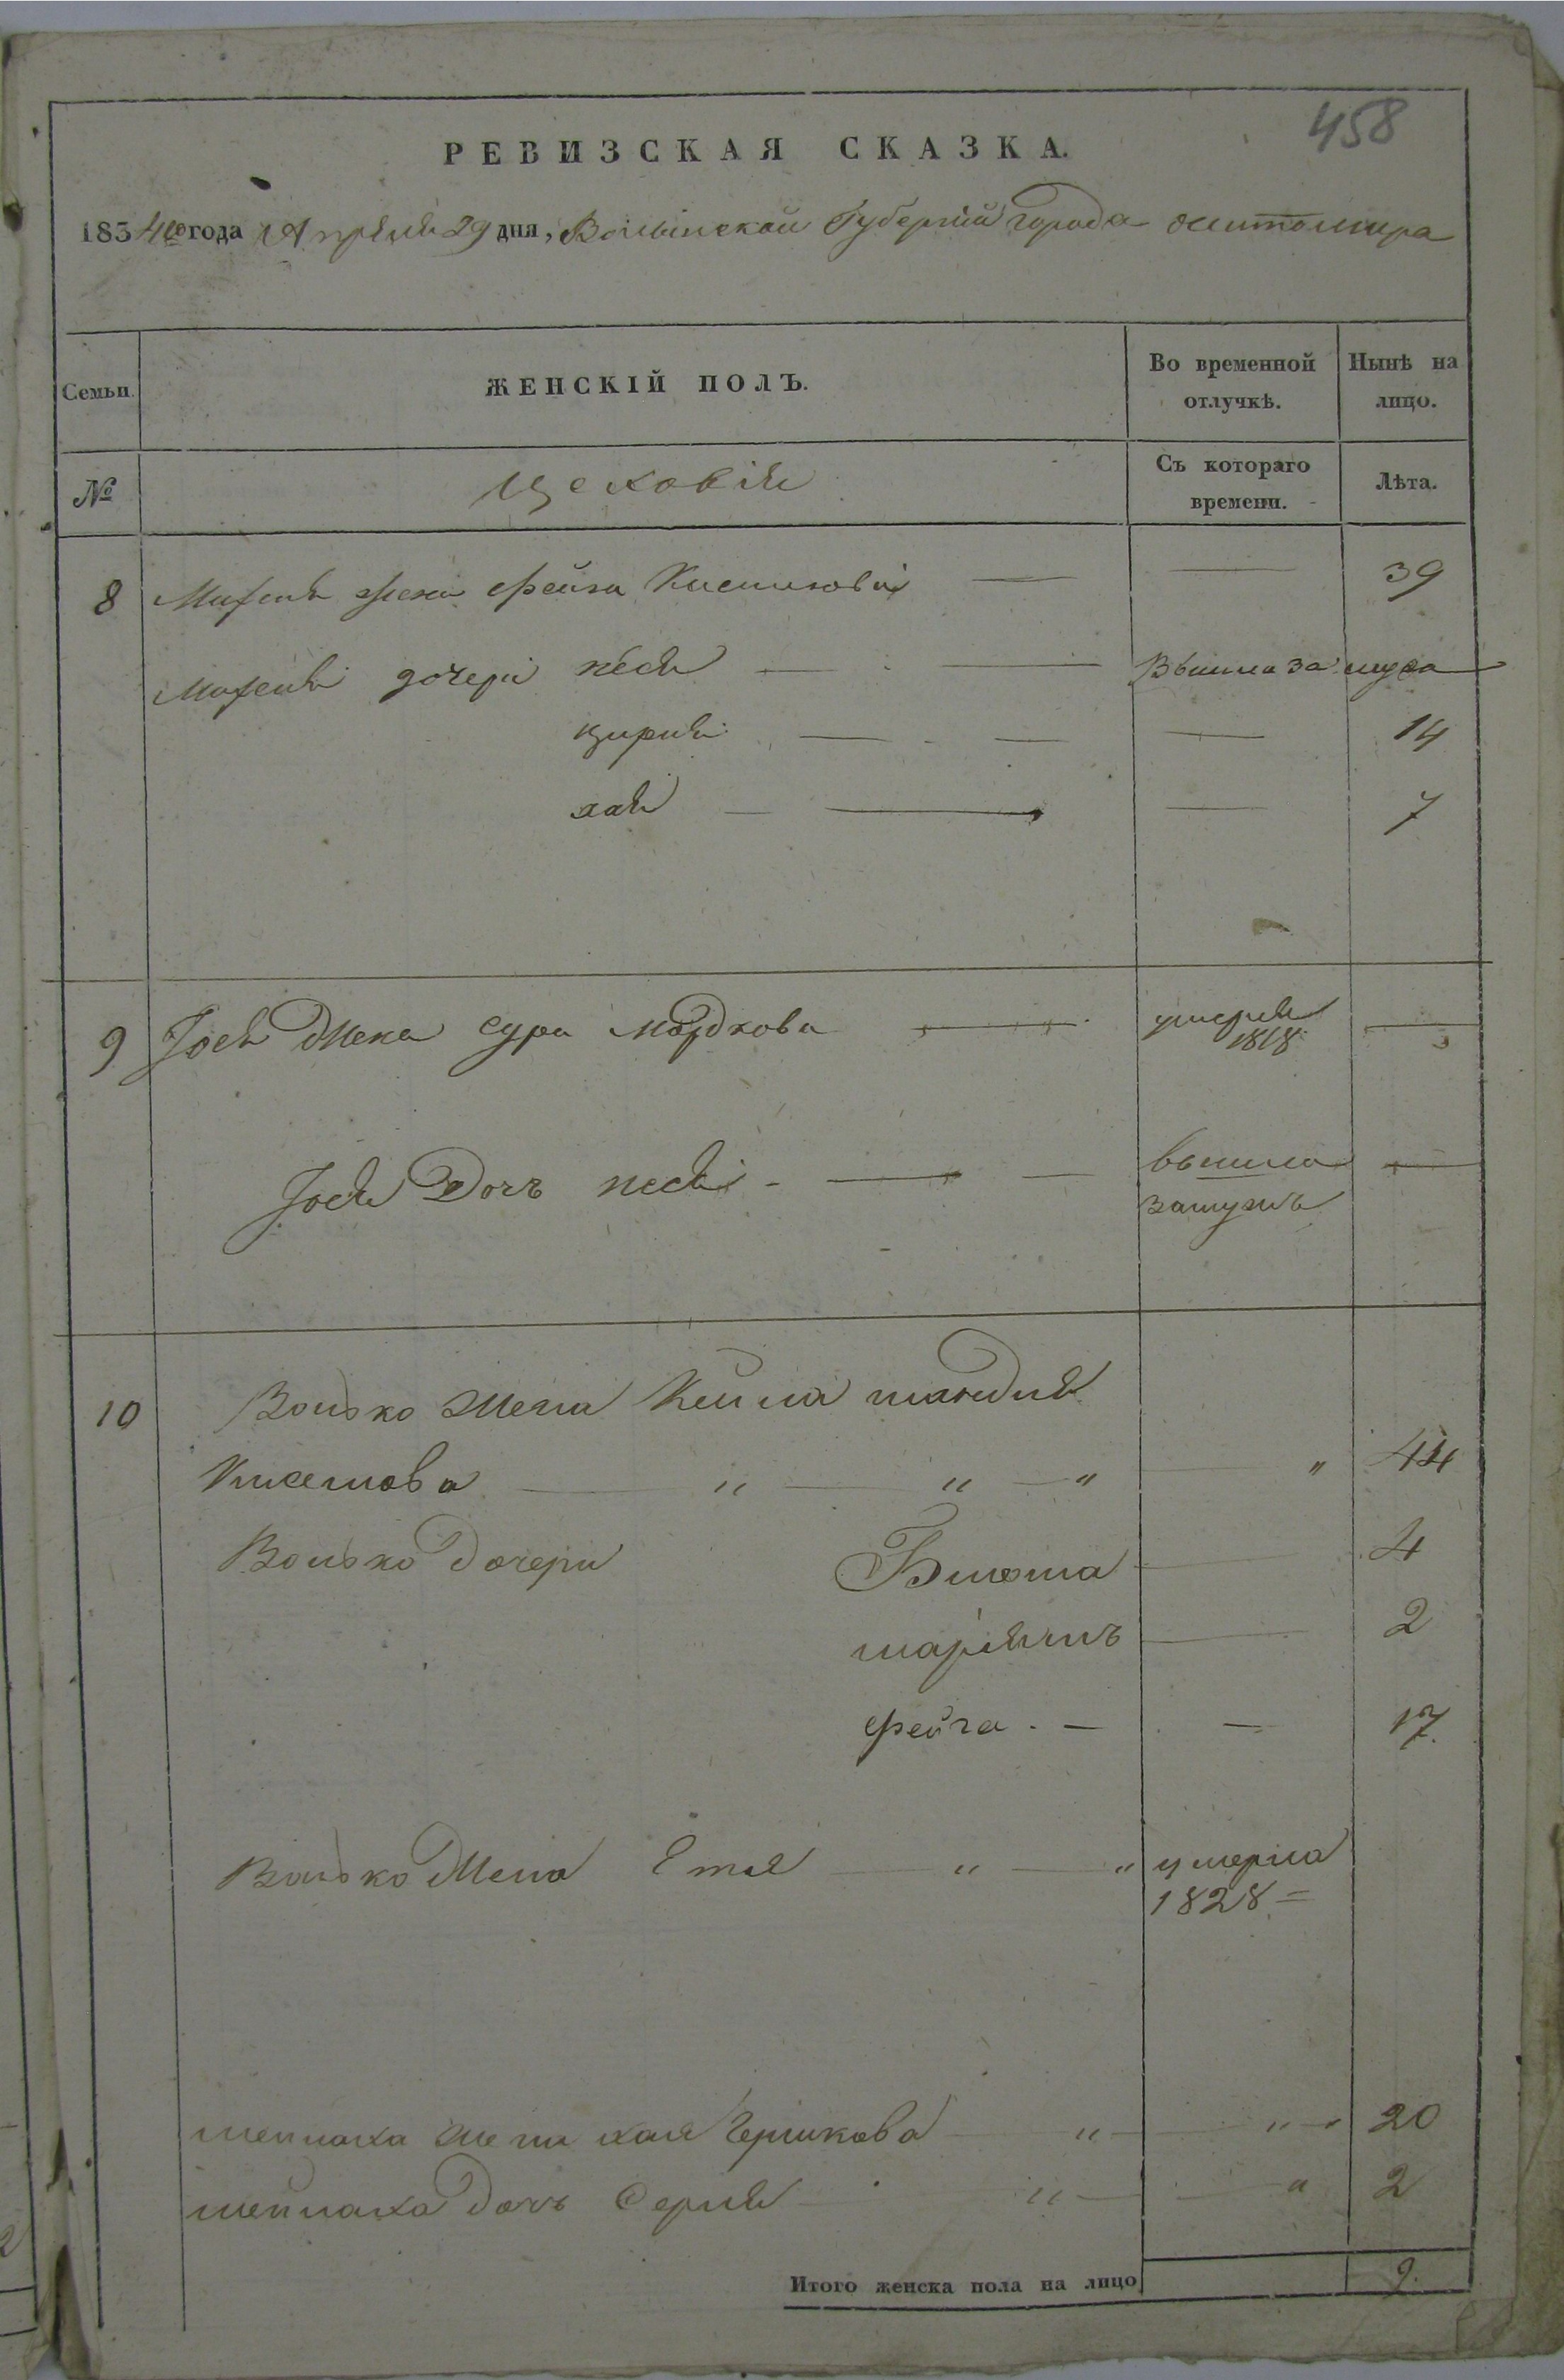 458
РЕВИЗСКАЯ СКАЗКА.
1834го года Апреля 29 дня, Волынской Губернiи города житомира
Семьи. ЖЕНСКIЙ ПОЛЪ. Во временной отлучкѣ. Нынѣ на лицо.
№ Цеховiя Съ котораго времени. Лѣта.
8 жена Фейга 39
дочери песя Вышла за мужа
цирля 14
хая 7
9 Iося Жена сура мордкова умерла 1818
Iося Дочь песя вышла замужъ
10 Волько Жена Кейла
44
Волько дочери 4
2
фейга 17
Волько Жена Етля умерла
1828
жена хая Гершкова 20
дочь Серля 2
Итого женска пола на лицо 9.